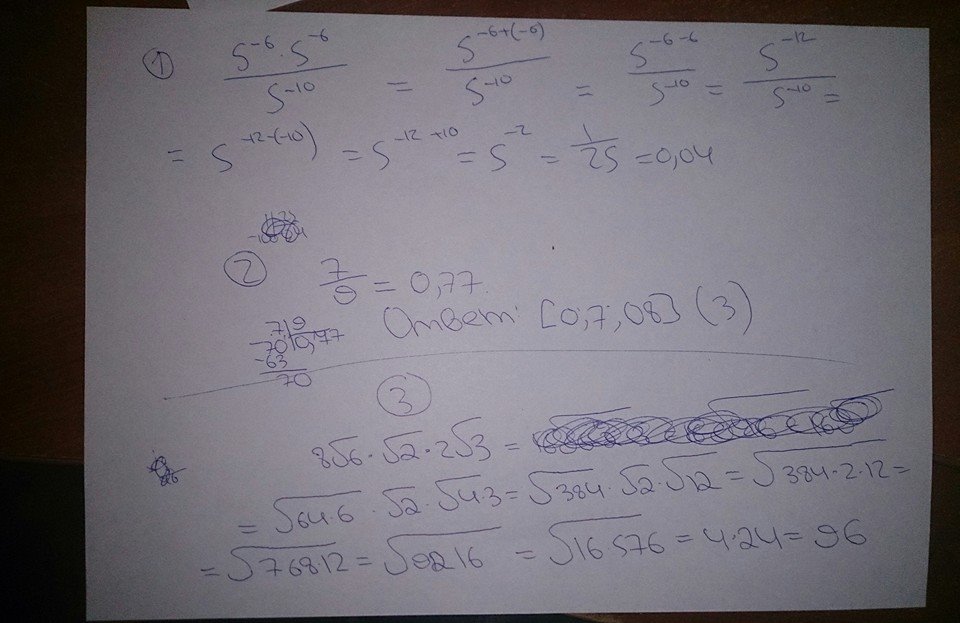 ① 5⁻⁶ · 5⁻⁶ / 5⁻¹⁰ = 5⁻⁶⁺⁽⁻⁶⁾ / 5⁻¹⁰ = 5⁻⁶⁻⁶ / 5⁻¹⁰ = 5⁻¹² / 5⁻¹⁰ =
= 5⁻¹²⁻⁽⁻¹⁰⁾ = 5⁻¹²⁺¹⁰ = 5⁻² = 1/25 = 0,04
② 7/9 = 0,77.
Ответ: [0,7; 0,8] (3)
7|9
-70|0,77
-63
70
③
8√6 · √2 · 2√3 =
= √64·6 · √2 · √4·3 = √384 · √2 · √12 = √384·2·12 =
= √768·12 = √9216 = √16·576 = 4·24 = 96